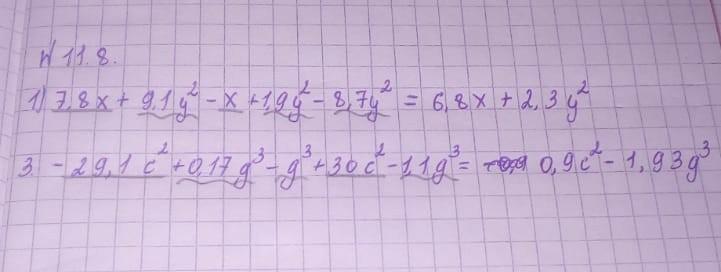 № 11.8.
1) 7,8x + 9,1y² - x + 1,9y² - 8,7y² = 6,8x + 2,3y²
3. - 29,1c² + 0,17g³ - g³ + 30c² - 1,1g³ = 0,9c² - 1,93g³